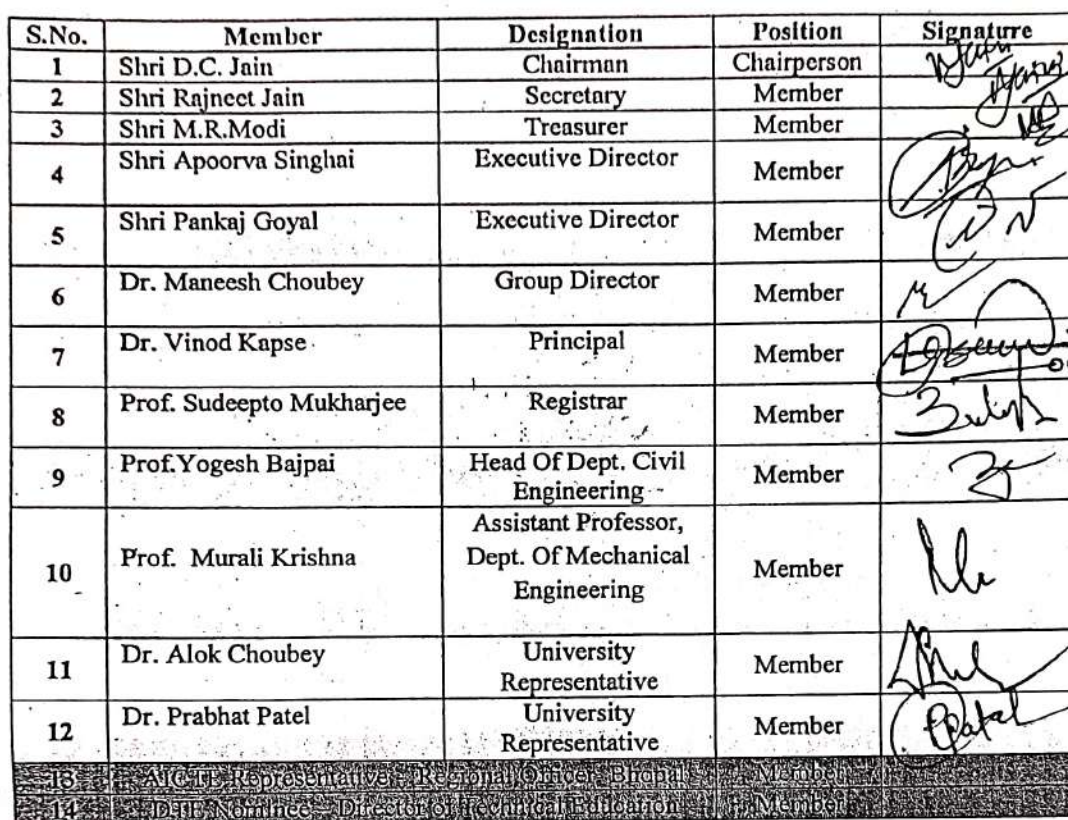 S.No. Member Designation Position Signaturre
1 Shri D.C. Jain Chairman Chairperson
2 Shri Rajneet Jain Secretary Member
3 Shri M.R.Modi Treasurer Member
4 Shri Apoorva Singhai Executive Director Member
5 Shri Pankaj Goyal Executive Director Member
6 Dr. Maneesh Choubey Group Director Member
7 Dr. Vinod Kapse Principal Member
8 Prof. Sudeepto Mukharjee Registrar Member
9 Prof.Yogesh Bajpai Head Of Dept. Civil
Engineering Member
Assistant Professor,
10 Prof. Murali Krishna Dept. Of Mechanical Member
Engineering
11 Dr. Alok Choubey University
Representative Member
12 Dr. Prabhat Patel University
Representative Member
13 AICTE Representative Regional Officer Bhopal Member
14 DTE Nominee Director of Technical Education Member